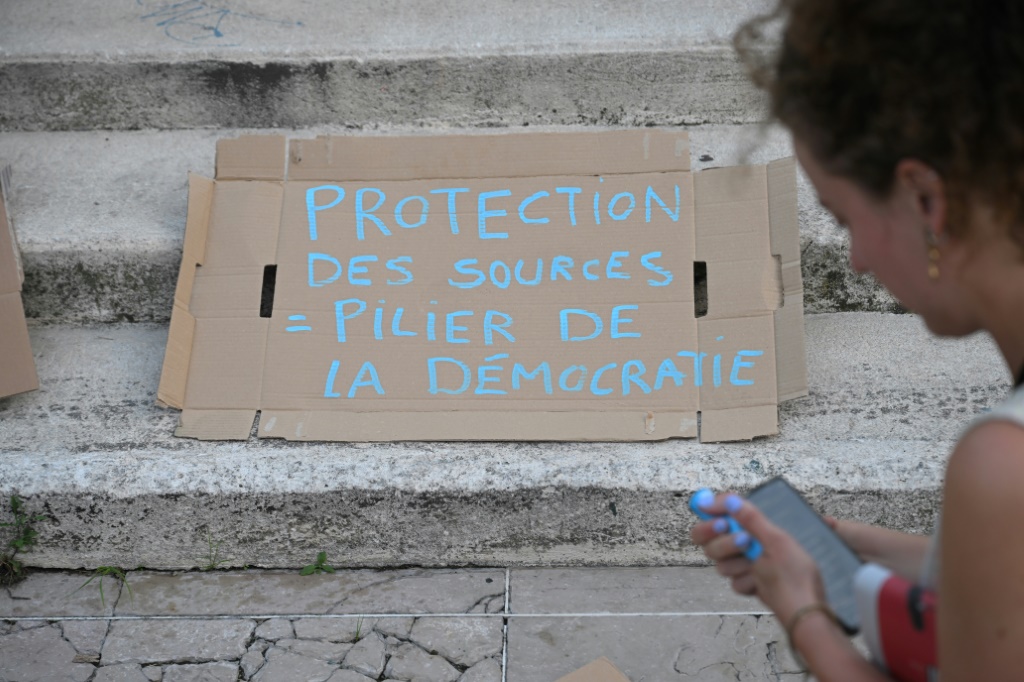 PROTECTION
DES SOURCES
= PILIER DE
LA DÉMOCRATIE